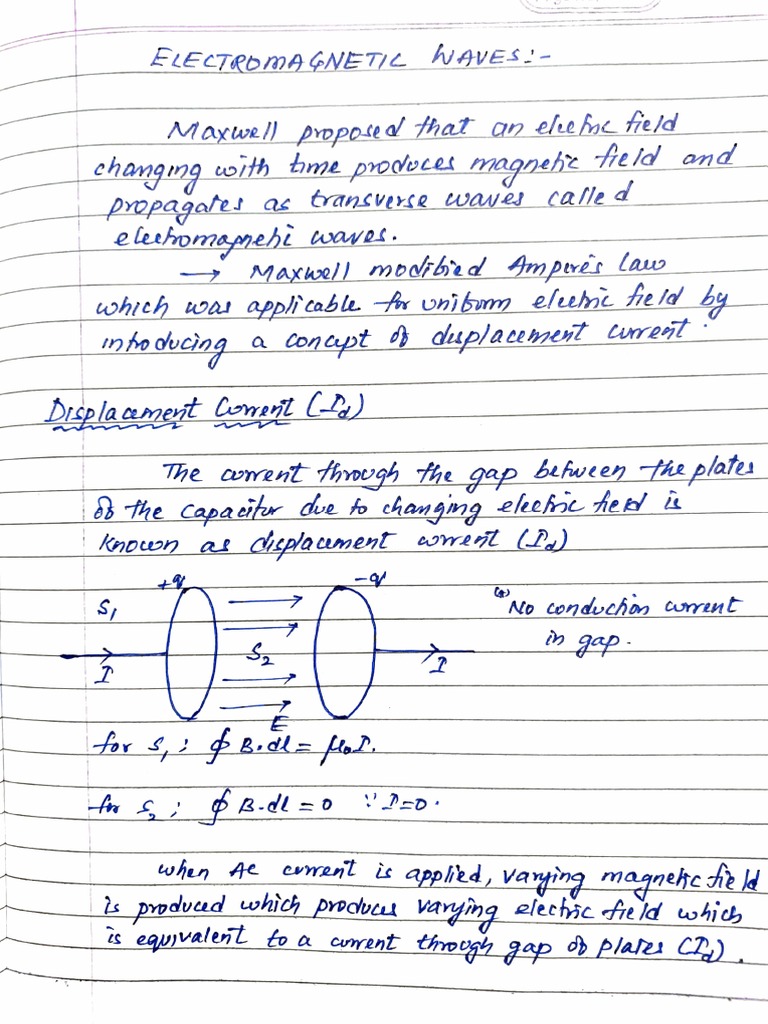 ELECTROMAGNETIC WAVES:-
Maxwell proposed that an electric field
changing with time produces magnetic field and
propagates as transverse waves called
electromagnetic waves.
→ Maxwell modified Ampere's law
which was applicable for uniform electric field by
introducing a concept of displacement current.
Displacement Current (I_d)
The current through the gap between the plates
of the capacitor due to changing electric field is
known as displacement current (I_d)
+q -q
S₁ (*) No conduction current
S₂ in gap.
I I
E
for S₁ ; ∮ B.dl = μ₀I.
for S₂ ; ∮ B.dl = 0 ∵ I=0.
when AC current is applied, varying magnetic field
is produced which produces varying electric field which
is equivalent to a current through gap of plates (I_d).